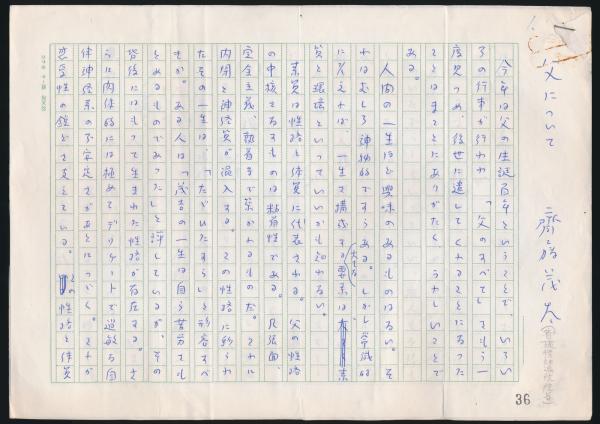 父について
齋藤茂太
今年は父の生誕百年ということで、いろい
ろの行事が行われ「父のすべて」をもう一
度见つめ、後世に遺してくれることになった
ことはまことにありがたく、うれしいことで
ある。
人間の一生ほど興味のあるものはない。そ
れはむしろ神秘的ですらある。しかし常識的
に考えれば、一生を構成する大きな要素は素
質と環境といっていいかも知れない。
素質は性格と体質に代表される。父の性格
の中核をなすものは粘着性である。几帳面、
完全主義、執着等で築かれるものだ。それに
内閉と神経質が混入する。この性格に彩られ
たその一生は、「ただいたましい」と形容すべ
きか。ある人は「茂吉の一生は自ら苦労をも
とめるものであった」と評しているが、その
背後にはもって生まれた性格が存在する。さ
らに肉体的には極めてデリケートで過敏な自
律神経系の不安定さがあとにつづく。それが
恋愛性の鎧をささえている。この性格と体質
36